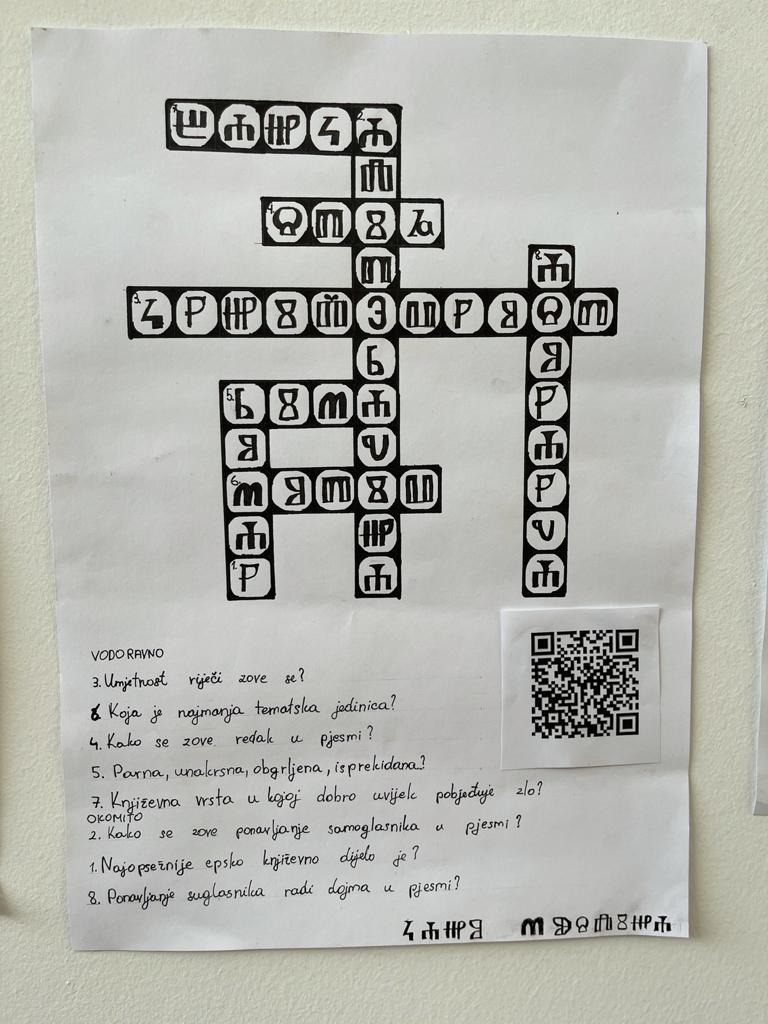 7. ⰁⰀⰌⰍ 2. Ⰰ
Ⰾ
4. ⰔⰕⰋⰘ
Ⱅ 8. Ⰰ
3. ⰍⰐⰌⰋⰆⰅⰂⰐⰑⰔⰕ
Ⱃ Ⱁ
5. ⰓⰋⰏⰀ Ⱀ
Ⱁ Ⱌ Ⰰ
6. ⰏⰑⰕⰋⰂ Ⱀ
Ⰰ Ⰼ Ⱌ
1. Ⱀ Ⰰ Ⰰ
VODORAVNO
3. Umjetnost riječi zove se?
6. Koja je najmanja tematska jedinica?
4. Kako se zove redak u pjesmi?
5. Parna, unakrsna, obgrljena, isprekidana?
7. Književna vrsta u kojoj dobro uvijek pobjeđuje zlo?
OKOMITO
2. Kako se zove ponavljanje samoglasnika u pjesmi?
1. Najopsežnije epsko književno dijelo je?
8. Ponavljanje suglasnika radi dojma u pjesmi?
ⰍⰀⰌⰑ ⰏⰖⰔⰎⰋⰌⰀ